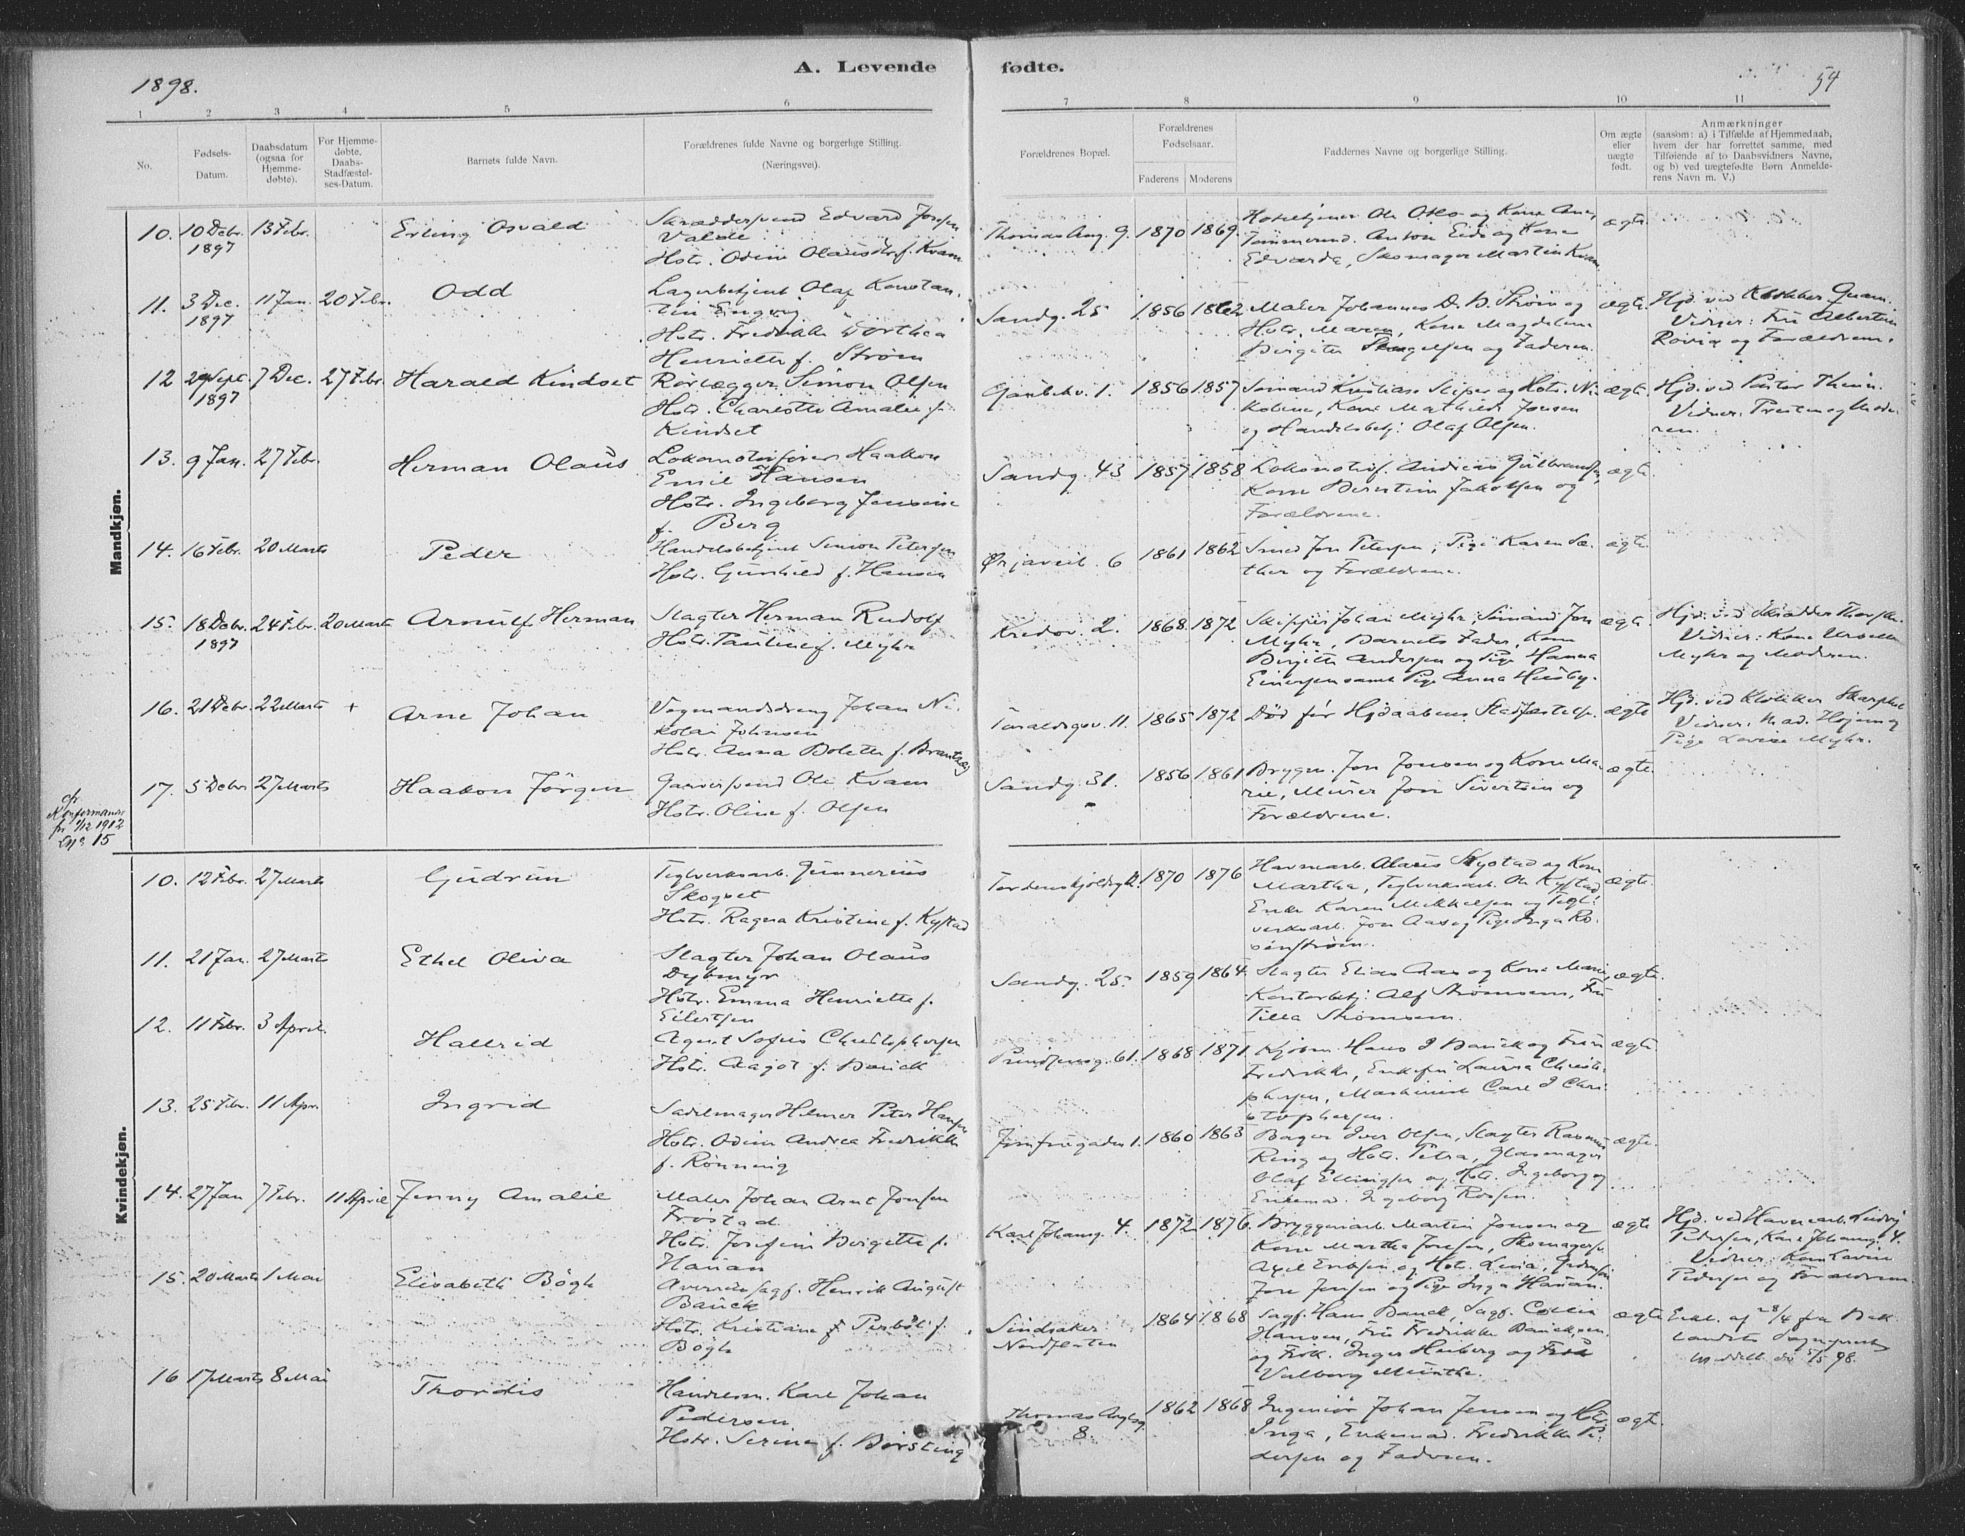 1898.
A. Levende
fødte.
54
1
2
3
4
5
6
7
8
9
10
11
No.
Fødsels-
Datum.
Daabsdatum
(ogsaa for
Hjemme-
døbte).
For Hjemme-
døbte,
Daabs-
Stadfæstel-
ses-Datum.
Barnets fulde Navn.
Forældrenes fulde Navne og borgerlige Stilling.
(Næringsvei).
Forældrenes Bopæl.
Forældrenes
Fødselsaar.
Faderens
Moderens
Faddernes Navne og borgerlige Stilling.
Om ægte
eller
uægte
født.
Anmærkninger
(saasom: a) i Tilfælde af Hjemmedaab,
hvem der har forrettet samme, med
Tilføiende af to Daabsvidners Navne,
og b) ved uægtefødte Børn Anmelde-
rens Navn m. V.)
Mandkjøn.
10. 10 Debr. 1897 13 Febr. Erling Osvald
Skrædersvend Edvard Josefsen
Valde
Hstr. Odine Olausdtr f. Kvam
Thomas Ang. 9. 1870 1869.
Anton Eide og Kone
Edvarda, Skomager Martin Kvam
ægte
11. 3 Dec. 1897 11 Jan. 20 Febr. Odd
Lagerbetjent Olaf Konstan-
tin Engvig
Hstr. Fredrikke Dorthea
Henriette f. Strøm
Sandg. 25 1856 1862
Maler Johannes D. B. Strøm og
Hstr. Maren, Kone Magdalene
Birgitte og Faderen
ægte
Hjd. ved Klokker Quam.
Vidner: Fru Albertine
og Forældrene.
12 29 Sept. 1897 7 Dec. 27 Febr. Harald Kindset
Rørlægger Simon Olsen
Hstr. Charlotte Amalie f.
Kindset
1. 1856 1857
Hstr. Ni-
koline, Kone Mathilde Jensen
og Handelsbetj. Olaf Olsen.
ægte.
Hjd. ved Pastor
Vidner: Presten og Mode-
ren.
13. 9 Jan. 27 Febr. Herman Olaus
Lokomotivfører Haakon
Emil Hansen
Hstr. Ingeborg Jensine
f. Berg
Sandg. 43 1857 1858
Lokomotivf. Andreas Gulbrandsen,
Kone Berntine Jakobsen og
Forældrene.
ægte
14. 16 Febr. 20 Marts Peder
Handelsbetjent Simon Petersen
Hstr. Gunhild f. Hansen
Ørjaveit. 6 1861 1862
Smed Jon Petersen, Pige Karen Sæ-
ther og Forældrene.
ægte
15. 18 Debr. 1897 24 Febr. 20 Marts Arnulf Herman
Slagter Herman Rudolf
Hstr. Pauline f. Myhr
2. 1868. 1872
Skipper Johan Myhr, Sømand Jon
Myhr, Barnets Fader, Kone
Birgitte Andersen og Pige Hanna
Einersen samt Pige Anna Husby.
ægte
Hjd. ved Skrædder
Vidner: Kone
Myhr og Moderen.
16. 21 Debr. 22 Marts + Arne Johan
Vognmandsdreng Johan Ni-
kolai Johnsen
Hstr. Anna Bolette f. Brantzæg
11. 1865 1872
Død før Hjdaabens Stadfæstelse.
ægte
Hjd. ved Klokker
Vidner: Mad. Højem og
Pige Lovise Myhr.
17. 5 Debr 27 Marts Haakon Jörgen
Garversvend Ole Kvam
Hstr. Oline f. Olsen
Sandg. 31. 1856 1861
Bryggem. Jon Jonsen og Kone Ma-
rie, Murer Jon Sivertsen og
Forældrene.
ægte
cfr
Konfirmanter
pr 1/12 1912
No 15
Kvindekjøn.
10. 12 Febr. 27 Marts Gudrun
Teglverksarb. Gunnerius
Skogset
Hstr. Ragna Kristine f. Kystad
Tordenskjoldsg. 1870 1876
Havnearb. Olaus Kystad og Kone
Martha, Teglverksarb. Ole Kystad
Enke Karen Mikkelsen og Tegl-
verksarb. Jon Aas og Pige Inga Ro-
senstrøm.
ægte.
11. 21 Jan. 27 Marts Ethel Oliva
Slagter Johan Olaus
Dybmyr
Hstr. Emma Henriette f.
Eilertsen
Sandg. 25. 1859 1864.
Slagter Elias Aas og Kone Marie,
Kontorbetj. Alf Strømsem, Fru
Tilla Strømsem.
ægte.
12. 11 Febr. 3 April. Hallrid
Agent Sofus Christophersen
Hstr. Aagot f. Bauck
Prindsensg. 61. 1868 1871.
Kjøbm. Hans J Bauck og Frue
Fredrikke, Enkefru Laura Christo-
phersen, Maskinist Carl J Chri-
stophersen.
ægte
13. 25 Febr. 11 Apr. Ingrid
Sadelmager Helmer Peter Hansen
Hstr. Odine Andrea Fredrikke
f. Rönning
Jomfrugaden 1. 1860 1863
Bager Iver Olsen, Slagter Rasmus
Ring og Hstr. Petra, Glasmager
Olaf Ellingsen og Hstr. Ingeborg og
Enkemad. Ingeborg Rossen.
ægte.
14. 27 Jan 7 Febr. 11 April Jenny Amalie
Maler Johan Arnt Jonsen
Frostad
Hstr. Josefine Birgitte f.
Hanan
Karl Johansg. 4. 1872 1876.
Bryggeriarb. Martin Jensen og
Kone Martha Jensen, Skomagersv.
Axel Eriksen og Hstr. Lina,
Jon Jensen og Pige Inga Hanan.
ægte
Hjd. ved Havnearb. Ludvig
Pedersen, Karl Johansg. 4.
Vidner: Kone Lavine
Pedersen og Forældrene
15. 20 Marts 1 Mai Elisabeth Bøgh
Overretssagf. Henrik August
Bauck
Hstr. Kristiane Perbøl f.
Bøgh
Sindsaker
Nordflaten
1864 1868
Sagf. Hans Bauck, Sagf. Collin
Hansen, Fru Fredrikke Bauck sen.
og Frk. Inger Heiberg og Frk
Valborg Münthe.
ægte
Erkl. af 28/4 fra Bak-
landets Sognepræst
Meddelt do 5/5 98.
16 17 Marts 8 Mai Thordis
Handelsm. Karl Johan
Pedersen
Hstr. Serine f. Börsting
Thomas Angelsg
8
1862 1868
Ingeniør Johan Jensen og Hstr
Inga, Enkemad. Fredrikke Pe-
dersen og Faderen.
ægte.